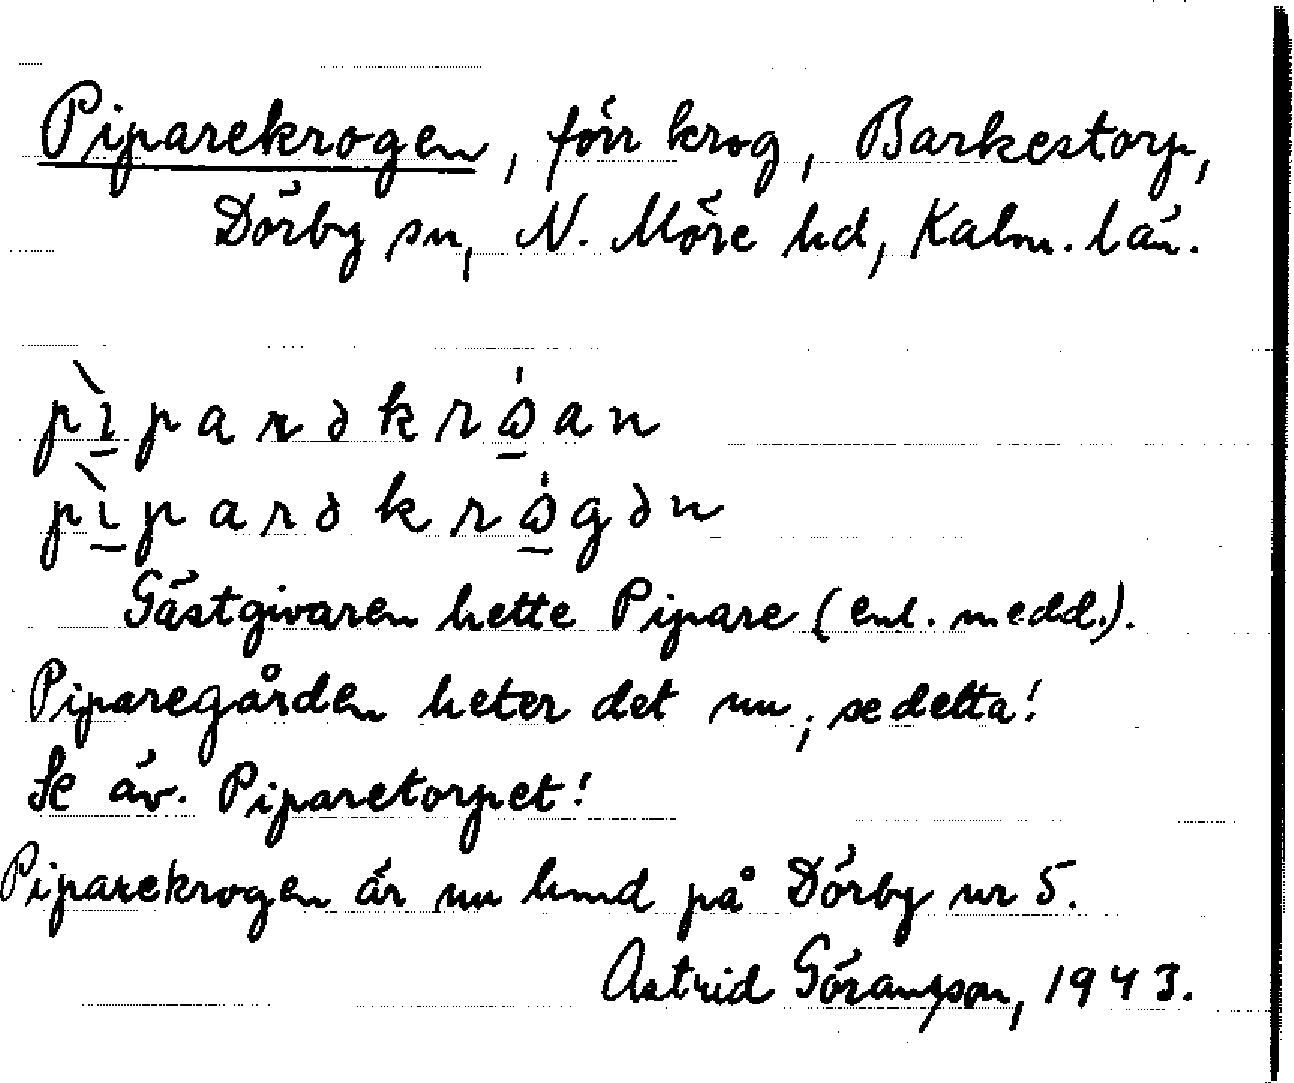 Piparekrogen, förr krog, Barkestorp,
Dörby sn, N. Möre hd, Kalm. län.
pìparəkrɷ́an
pìparəkrɷ́gən
Gästgivaren hette Pipare (enl. medd.).
Piparegården heter det nu, se detta!
Se äv. Piparetorpet!
Piparekrogen är nu lund på Dörby nr 5.
Astrid Göransson, 1943.